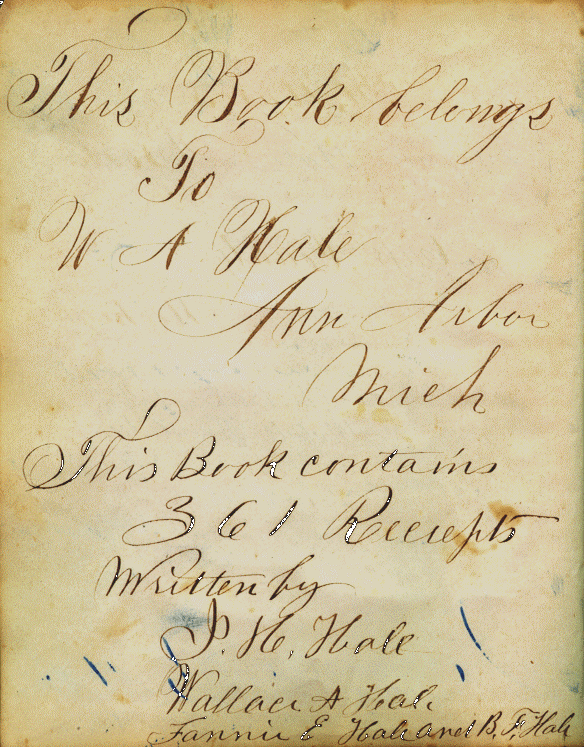 This Book belongs
To
W A Hale
Ann Arbor
Mich
This Book contains
361 Receipts
Written by
J. H. Hale
Wallace A Hale
Fannie E Hale and B. F. Hale